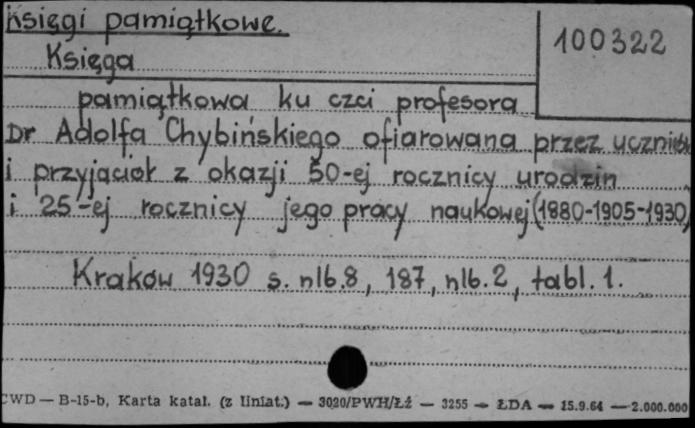 Księgi pamiątkowe.
100322
Księga
pamiątkowa ku czci profesora
Dr Adolfa Chybińskiego ofiarowana przez uczniów
i przyjaciół z okazji 50-ej rocznicy urodzin
i 25-ej rocznicy jego pracy naukowej (1880-1905-1930)
Kraków 1930 s. nlb. 8, 187, nlb. 2, tabl. 1.
CWD — B-15-b, Karta katal. (z liniat.) — 3020/PWH/Łź — 3255 — ŁDA — 15.9.64 — 2.000.000